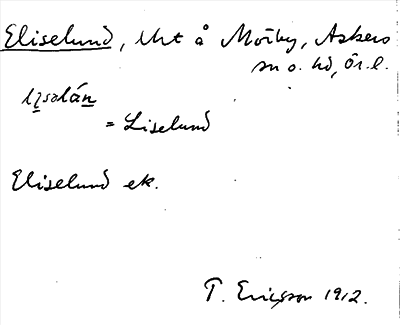 Eliselund, lht å Mörby, Askers
sn o. hd, Ör. l.
= Liselund
Eliselund ek.
T. Ericsson 1912.